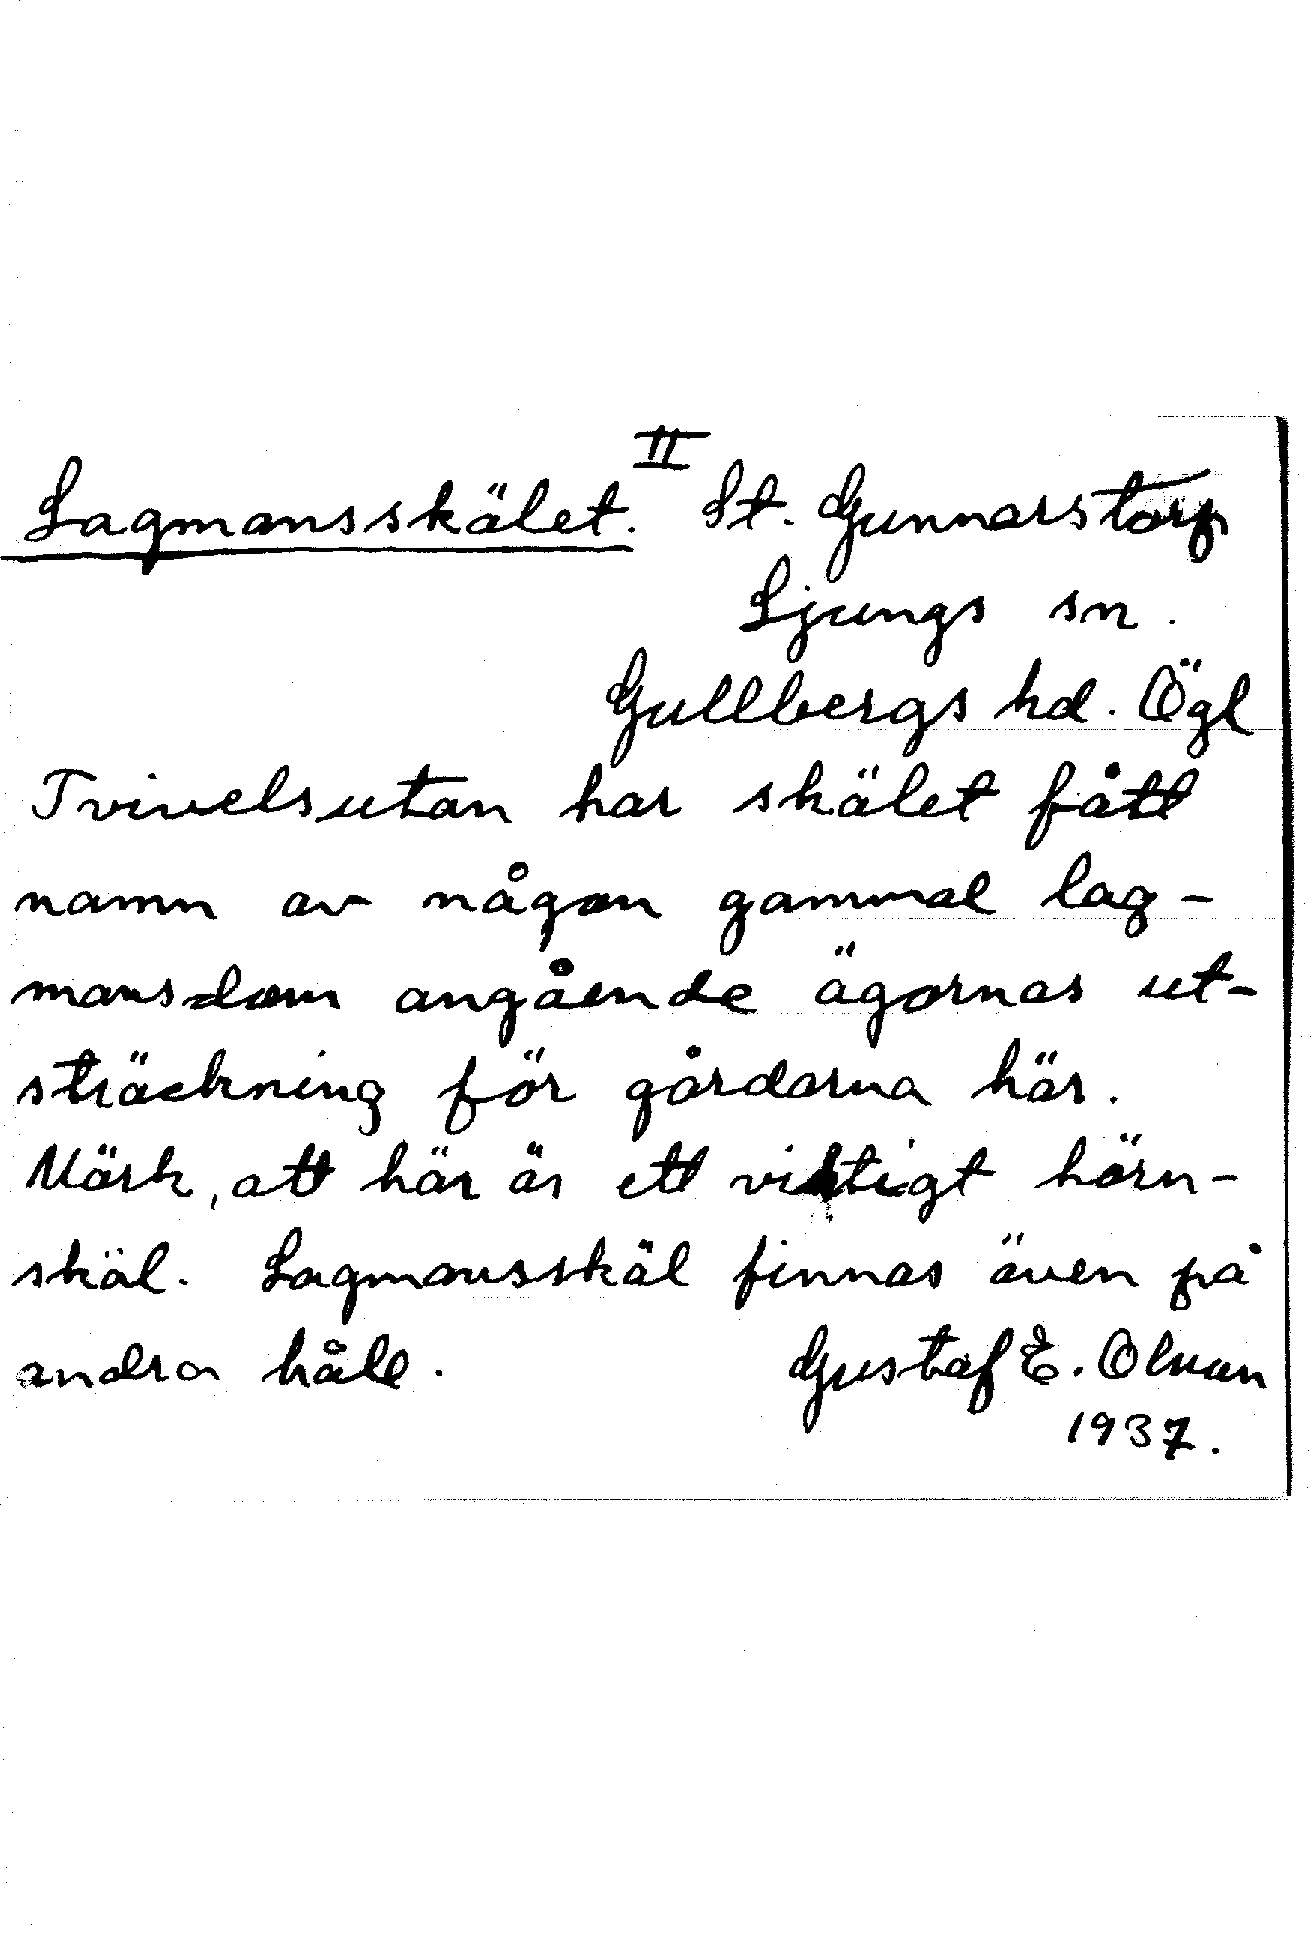 II
Lagmansskälet. St. Gunnarstorp
Ljungs sn.
Gullbergs hd. Ögl
Tvivelsutan har skälet fått
namn av någon gammal lag-
mansdom angående ägornas ut-
sträckning för gårdarna här.
Märk, att här är ett viktigt hörn-
skäl. Lagmansskäl finnas även på
andra håll. Gustaf E.
1937.